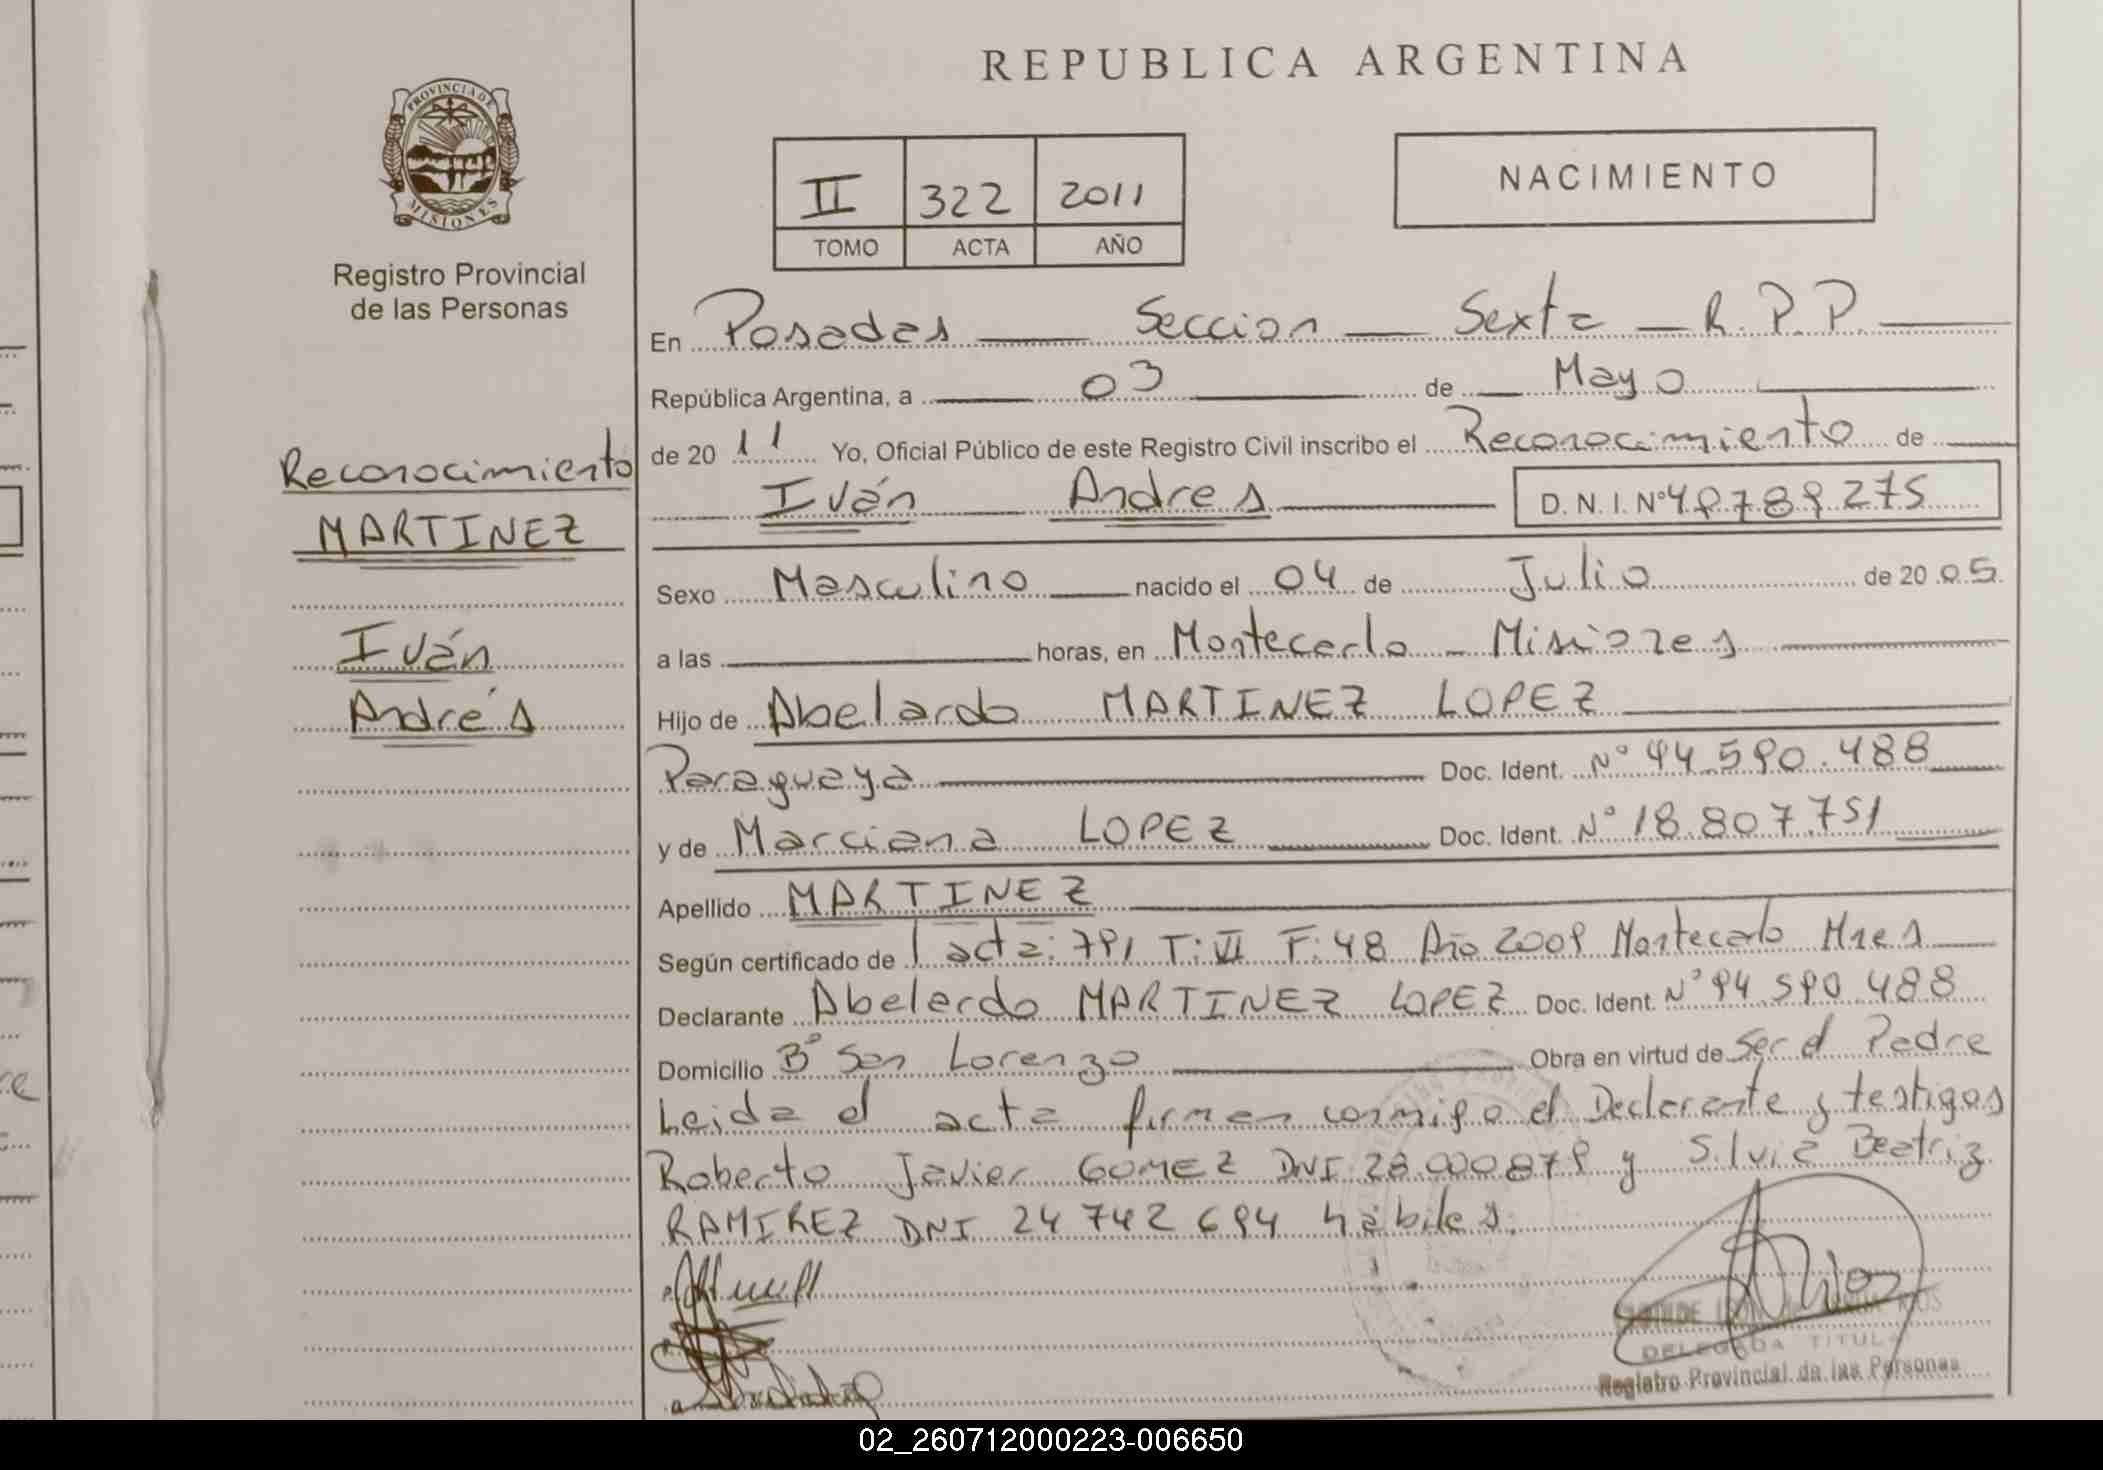 REPUBLICA ARGENTINA
PROVINCIA DE
MISIONES
Registro Provincial
de las Personas
II 322 2011
TOMO ACTA AÑO
NACIMIENTO
En Posadas Seccion Sexta R.P.P.
República Argentina, a 03 de Mayo
de 20 11 Yo, Oficial Público de este Registro Civil inscribo el Reconocimiento de
Iván Andres D.N.I. Nº 49789275
Reconocimiento
MARTINEZ
Iván
Andrés
Sexo Masculino nacido el 04 de Julio de 20 05
a las horas, en Montecarlo - Misiones
Hijo de Abelardo MARTINEZ LOPEZ
Paraguaya Doc. Ident. Nº 94.590.488
y de Marciana LOPEZ Doc. Ident. Nº 18.807.751
Apellido MARTINEZ
Según certificado de acta: 791 T: VI F: 48 Año 2009 Montecarlo Mnes
Declarante Abelardo MARTINEZ LOPEZ Doc. Ident. Nº 94.590.488
Domicilio Bº San Lorenzo Obra en virtud de Ser el Padre
Leida el acta firman conmigo el Declarante y testigos
Roberto Javier GOMEZ DNI 28.000.879 y Silvia Beatriz
RAMIREZ DNI 24 742 694 hábiles.
DELEGADA TITULAR
Registro Provincial de las Personas
02_260712000223-006650